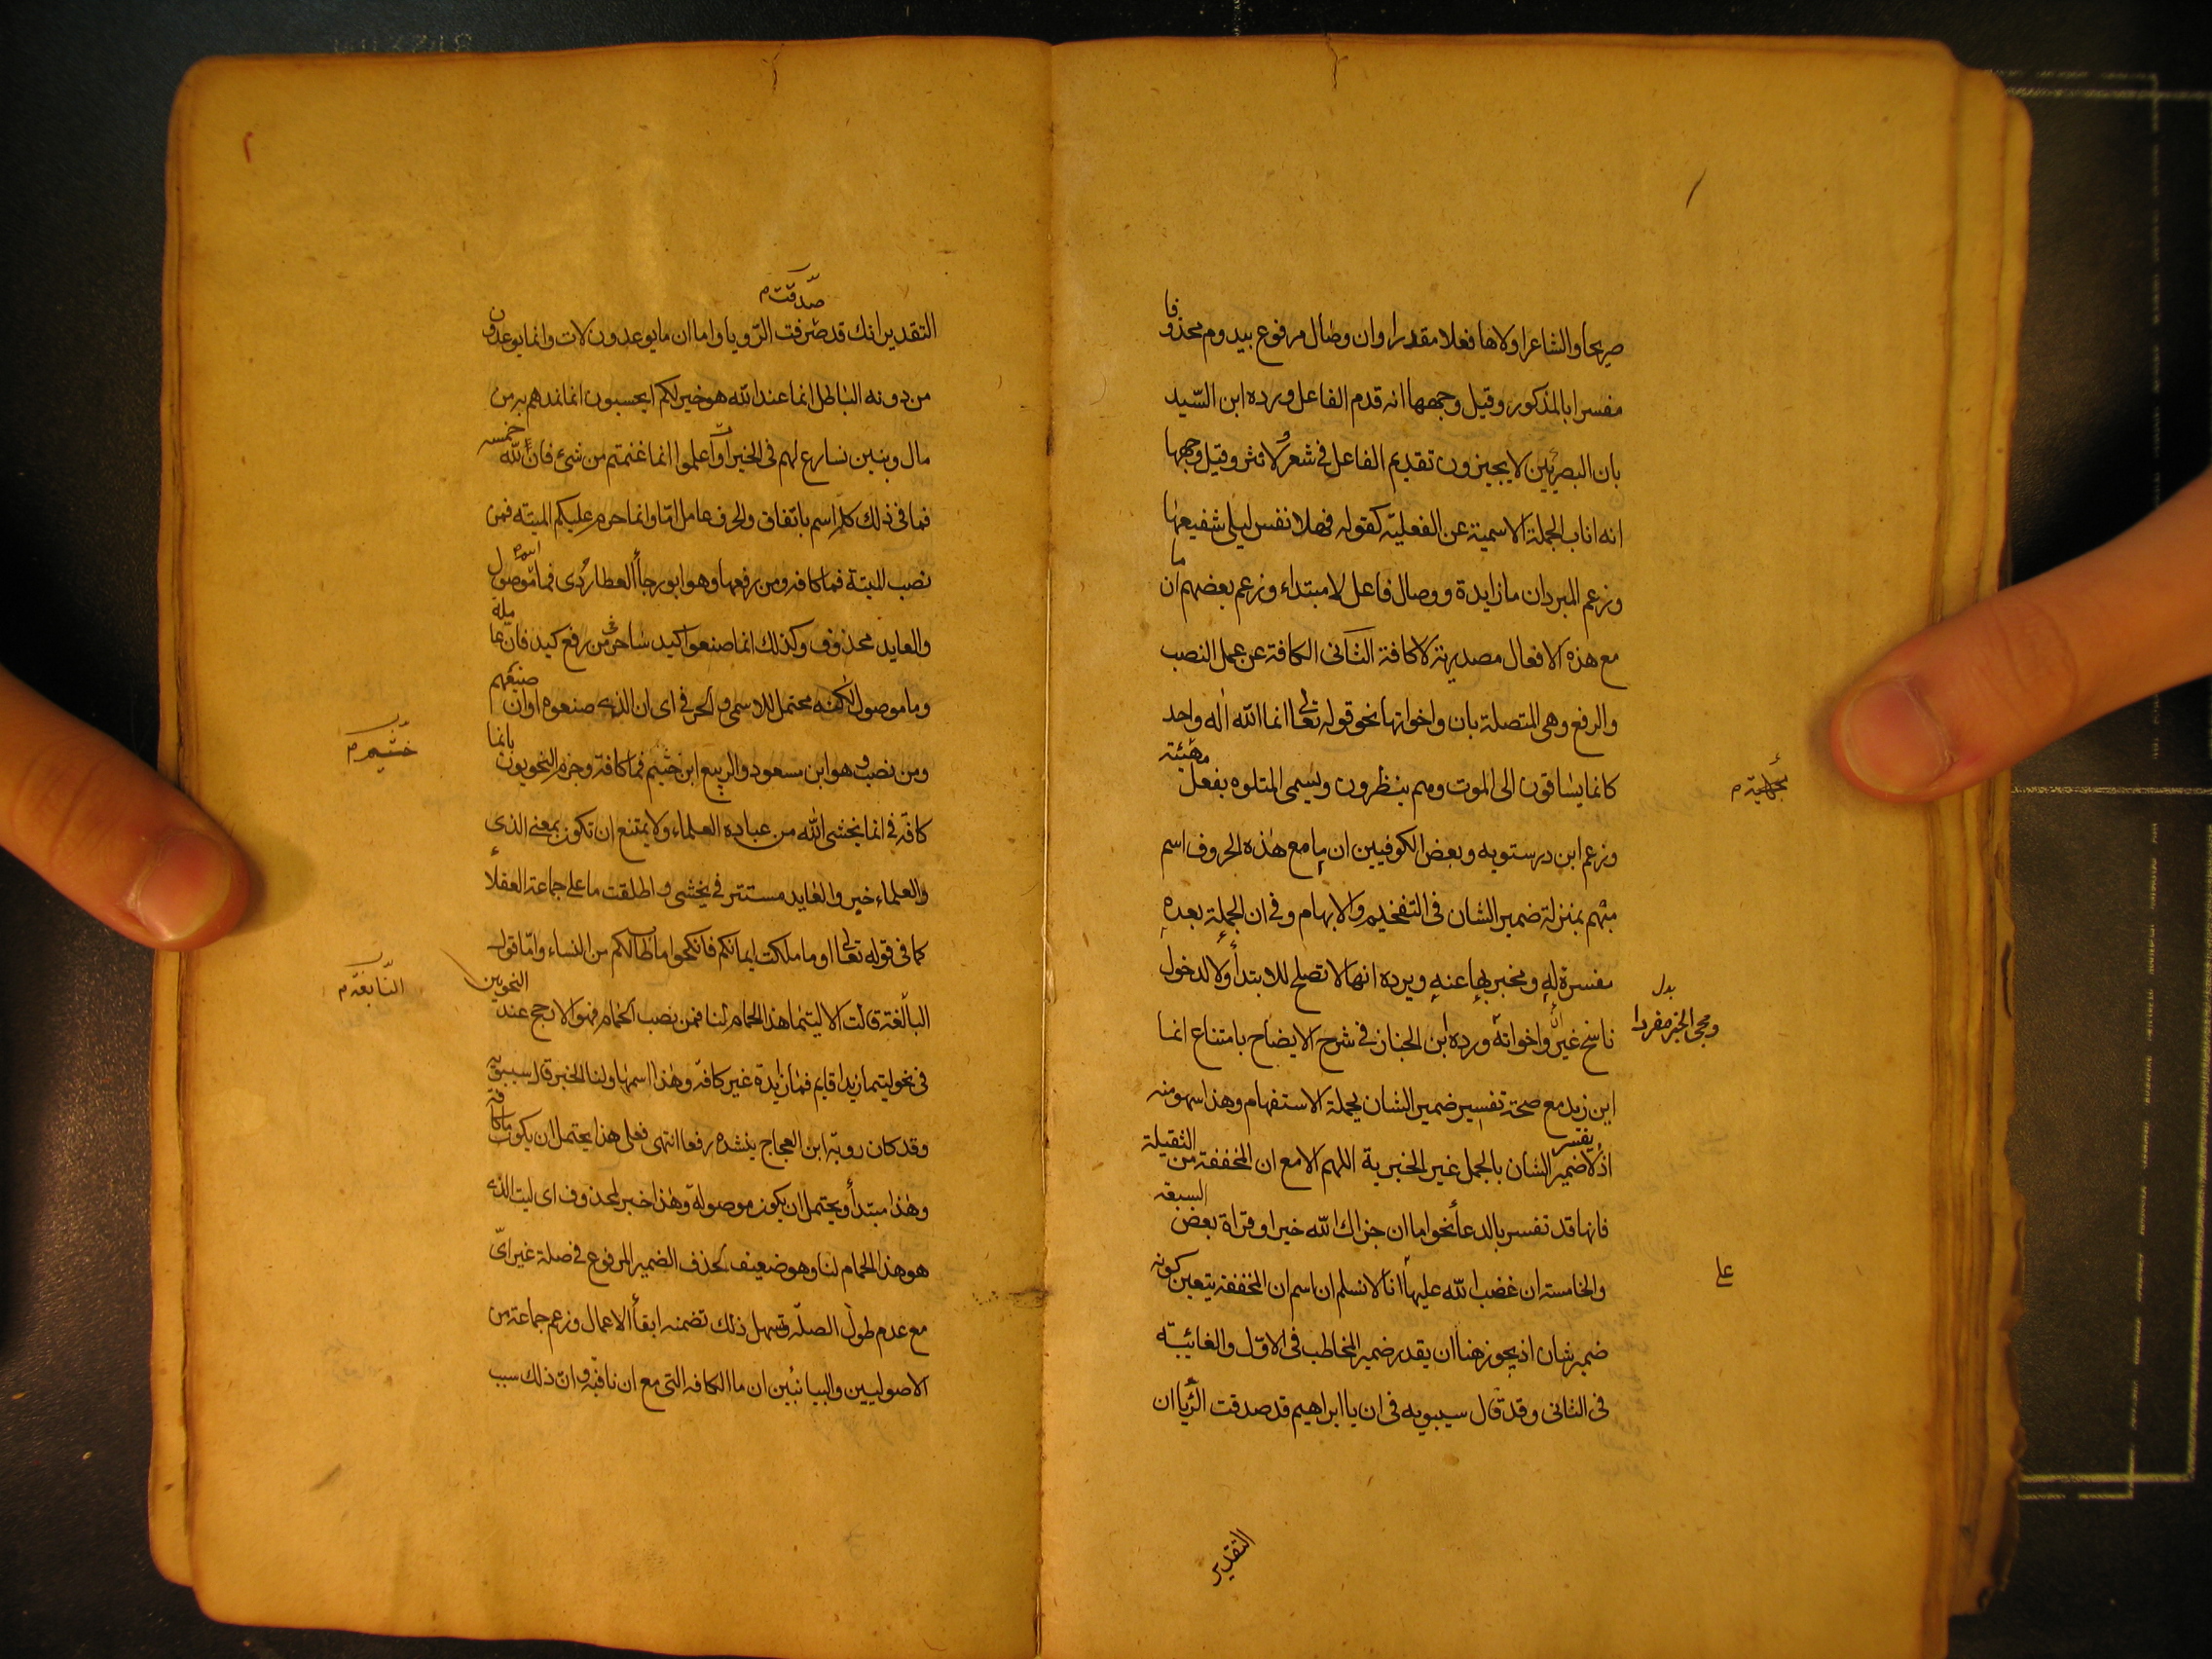 ١
صريحا والشاعر اولاها فعلا مقدرا وان وصال مرفوع بيدوم محذوفا
مفسرا بالمذكور وقيل وجهها انه قدم الفاعل ورده ابن السّيد
بان البصريين لا يجيزون تقديم الفاعل في شعر ولا نثر وقيل وجهها
انه اناب الجملة الاسمية عن الفعليّة كقوله فهلا نفس ليلى شفيعها
وزعم المبرد ان ما زايدة ووصال فاعل لا مبتداء وزعم بعضهم ان ما
مع هذه الافعال مصدرية لا كافة الثانى الكافة عن عمل النصب
والرفع وهى المتصلة بان واخواتها نحو قوله تعالى انما الله اله واحد
كانما يساقون الى الموت وهم ينظرون ويسمى المتلوه بفعل مهيئة
وزعم ابن درستويه وبعض الكوفيين ان ما مع هذه الحروف اسم
مبهم بمنزلة ضمير الشان فى التفخيم والابهام وفى ان الجملة بعده
مفسرة له ومخبر بها عنه ويرده انها لا تصلح للابتدأ ولا لدخول
ناسخ غير ان واخواته ورده ابن الخباز فى شرح الايضاح بامتناع انما
اين زيد مع صحة تفسير ضمير الشان بجملة الاستفهام وهذا سهو منه
اذ لا يفسر ضمير الشان بالجمل غير الخبرية اللهم الا مع ان المخففة من الثقيلة
فانها قد تفسر بالدعأ نحو اما ان جزاك الله خيرا وقراة بعض السبعة
والخامسة ان غضب الله عليها انا لا نسلم ان اسم ان المخففة يتعين كونه
ضمير شان اذ يجوز هنا ان يقدر ضمير المخاطب فى الاول والغائبة
فى الثانى وقد قال سيبويه فى ان يا ابراهيم قد صدقت الرؤيا ان
التقدير
بدل
ومجى الخبر مفردا
على
٢
صدّقت م
التقدير انك قد صدقت الرّويا واما ان ما يوعدون لات وانما يوعدون
من دونه الباطل انما عند الله هو خير لكم ايحسبون انما نمدهم به من
مال وبنين نسارع لهم فى الخيرات واعلموا انما غنمتم من شئ فان لله خمسه
فما فى ذلك كله اسم باتفاق والحرف عامل امّا وانما حرم عليكم الميتة فمن
نصب الميتة فما كافه ومن رفعها وهو ابو رجأ العطاردى فما اسم موصول
والعايد محذوف وكذلك انما صنعوا كيد ساحر فى من رفع كيد فان عاملة
وما موصول لكنه محتمل للاسمى والحرفى اى ان الذى صنعوه او ان صنيعهم
ومن نصب وهو ابن مسعود والربيع ابن خثيم فما كافة وجزم النحويون بانما
كافه فى انما يخشى الله من عباده العلماء ولا يمتنع ان تكون بمعنى الذى
والعلماء خبر والعايد مستتر فى يخشى واطلقت ما على جماعة العقلاء
كما فى قوله تعالى او ما ملكت ايمانكم فانكحوا ما طاب لكم من النساء وامّا قول
النابغة قالت الا ليتما هذا الحمام لنا فمن نصب الحمام فهو الارجح عند النحويين
فى نحو ليتما زيدا قايم فما زايدة غير كافّة وهذا اسمها ولنا الخبر قال سيبويه
وقد كان روبة ابن العجاج ينشده رفعا انتهى فعلى هذا يحتمل ان يكون ما كافة
وهذا مبتدأ ويحتمل ان يكون موصولة وهذا خبر لمحذوف اى ليت الذى
هو هذا الحمام لنا وهو ضعيف لحذف الضمير المرفوع فى صلة غير اىّ
مع عدم طول الصلة وسهل ذلك تضمنه ابقأ الاعمال وزعم جماعة من
الاصوليين والبيانيين ان ما الكافه التى مع ان نافية وان ذلك سبب
خثيم م
النّابغة م